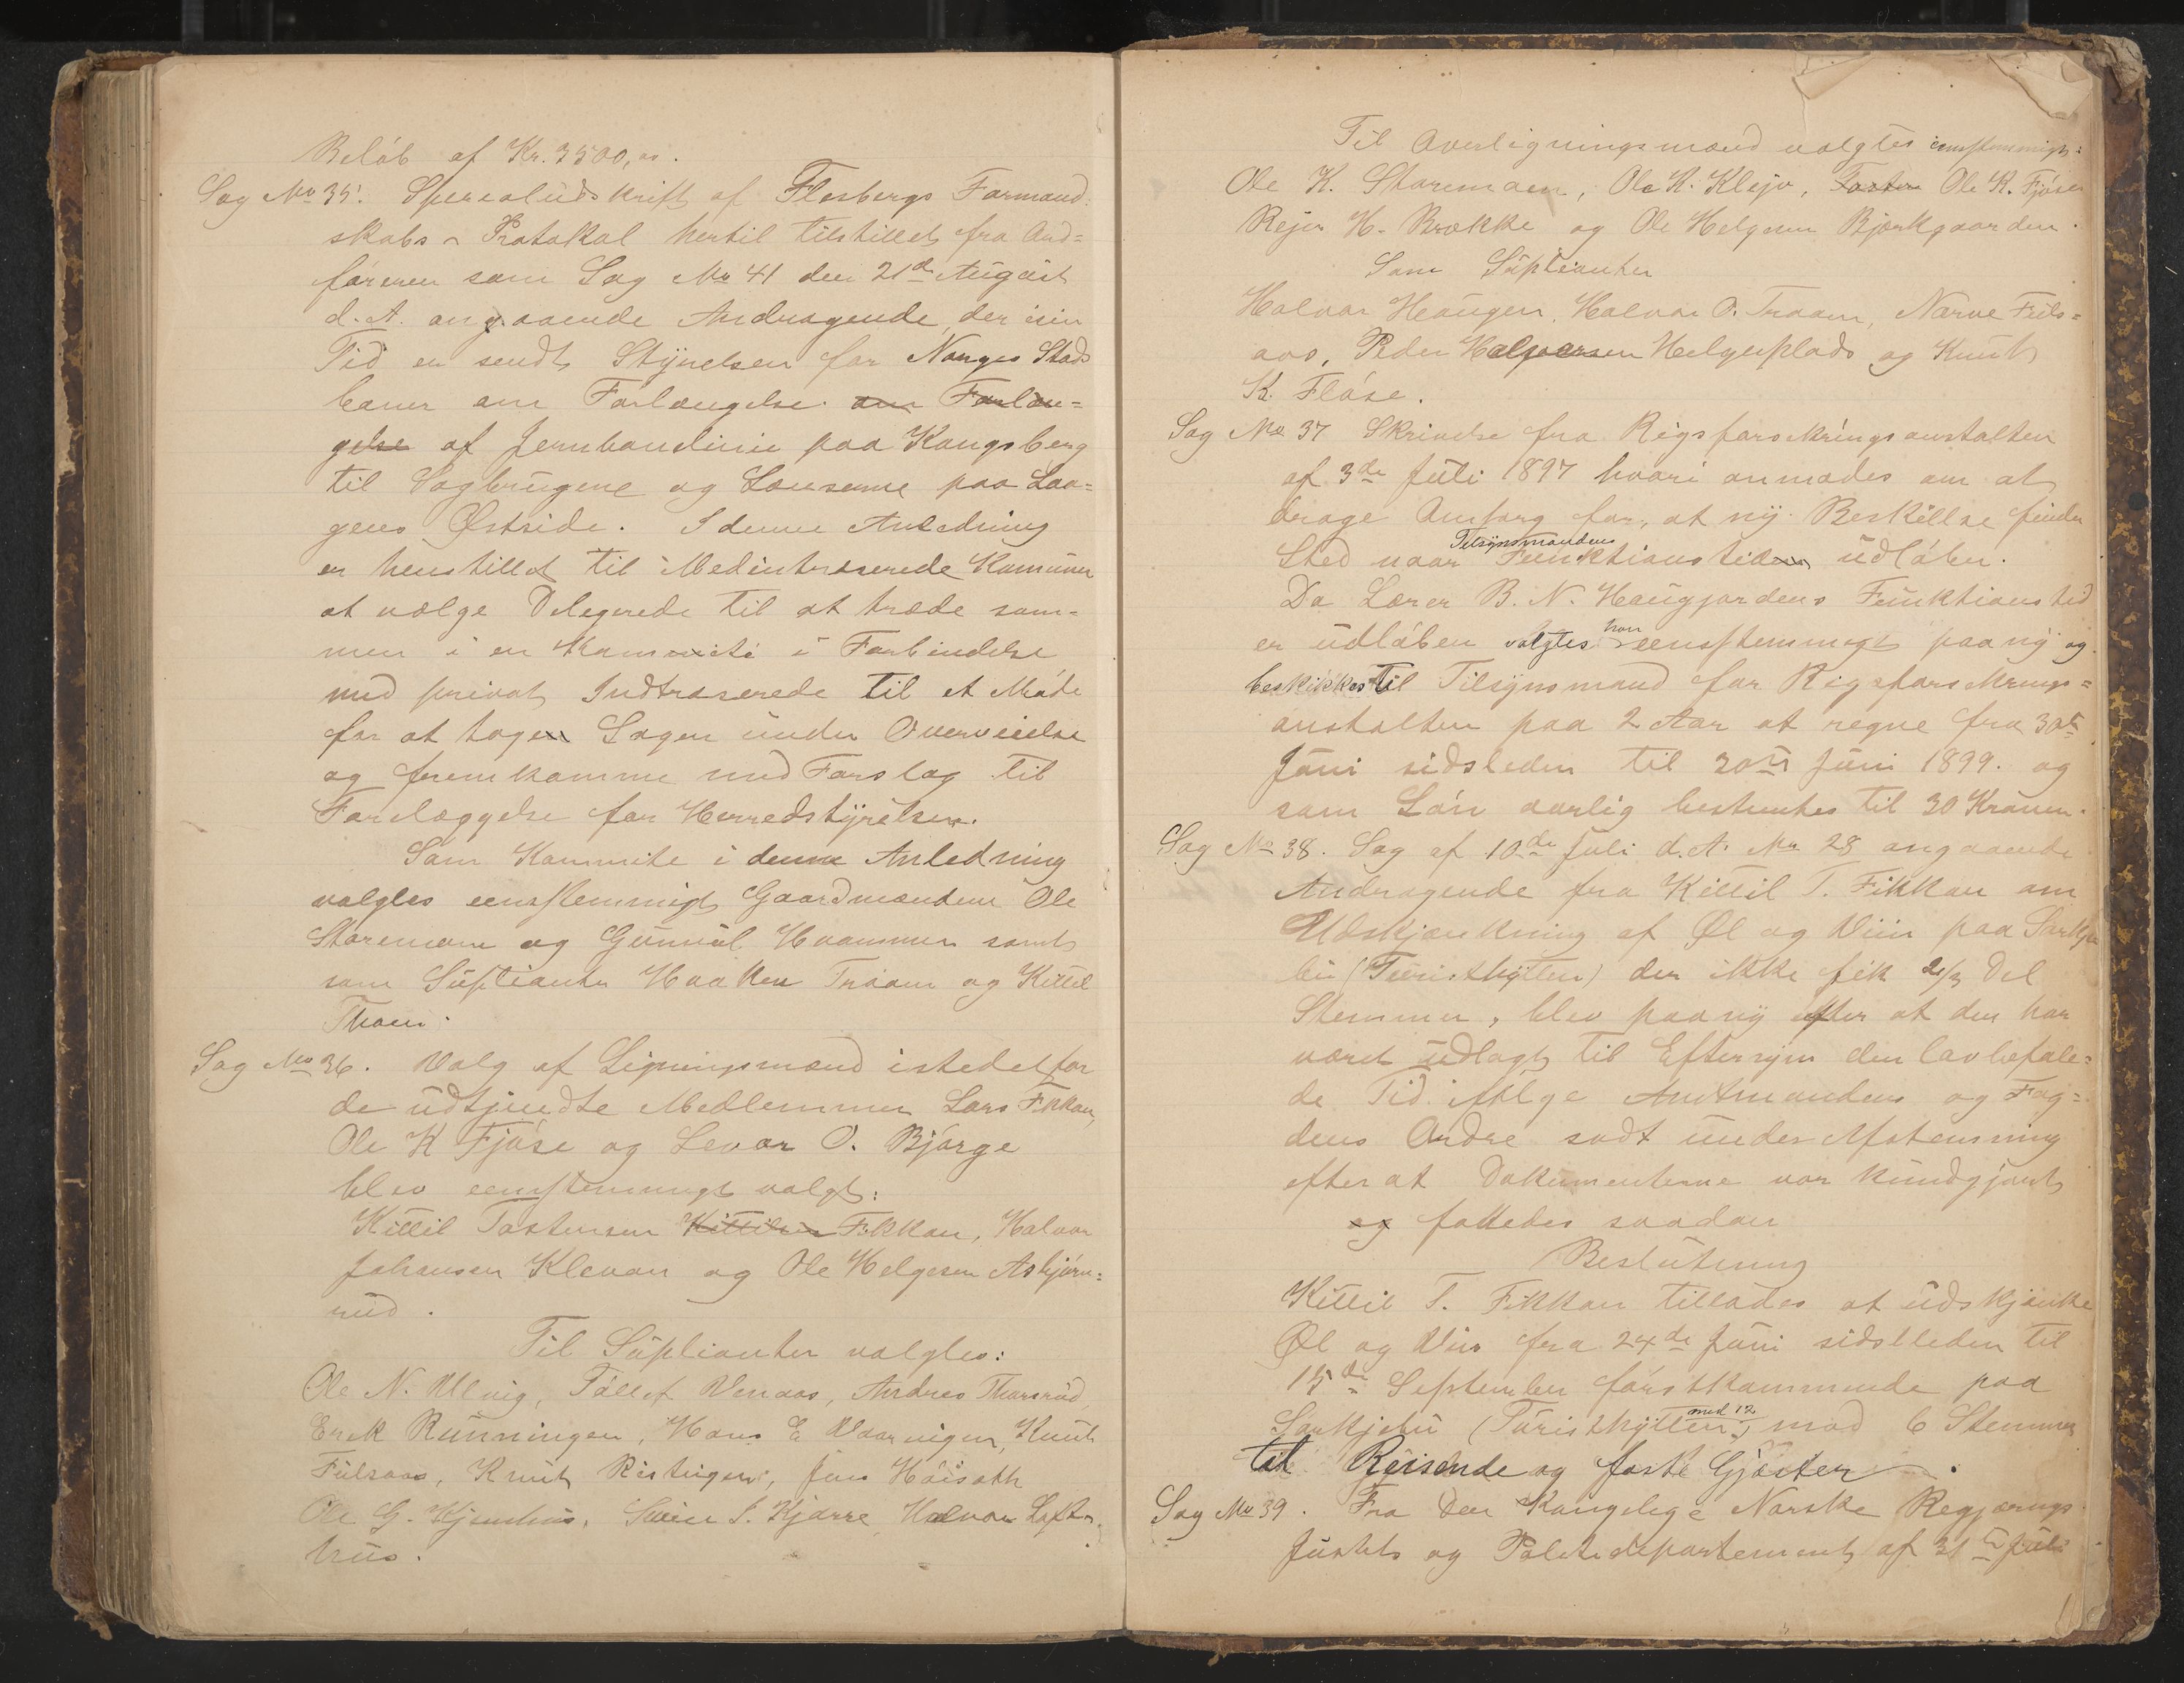 Beløb af Kr. 3500,00.
Sag No 35. Specialudskrift af Flesbergs Formand-
skabs - Protokol hertil tilstillet fra Ord-
føreren som Sag No 41 den 21de August
d. A. angaaende Andragende, der i sin
Tid er sendt Styrelsen for Norges Stads
baner om Forlængelse om Forlæn-
gelse af Jernbanelinie paa Kongsberg
til Sagbrugene og Lænserne paa Laa-
gens Østside. I denne Anledning
er henstillet til Medintreserede Kommuner
at vælge Delegerede til at træde sam-
men i en Kommite i Forbindelse
med privat Indtreserede til et Møde
for at tagen Sagen under Overveielse
og fremkomme med Forslag til
Forelæggelse for Herredstyrelsen.
Som Kommite i denne Anledning
valgtes eenstemmigt Gaardmændene Ole
Storemoen og Gunnul Hvammen samt
som Supleanter Haaken Traaen og Kittil
Thoen.
Sag No 36. Valg af Ligningsmænd istedetfor
de udtjendte Medlemmer Lars Fikkan,
Ole K Fjøse og Levor O. Bjørge
blev eenstemmigt valgt:
Kittil Tostensen Kittilsen Fikkan, Halvor
Johansen Klevan og Ole Helgesen Asbjørn-
rud.
Til Suplianter valgtes:
Ole N. Ulvig, Tollef Venaas, Andres Thorsrud,
Erik Runningen, Hans E Vaarnigen, Knut
Fulsaas, Knut Ristingen, Jens Høisæth
Ole G. Hjemhus, Svein S. Hjærre, Halvor Lofts-
hus.
Til Overligningsmænd valgtes eenstemmigt:
Ole K. Storemoen, Ole K. Klejv, Tosten Ole K. Fjøsen
Rejer H. Brække og Ole Helgesen Bjørkgaarden.
Som Suplianter
Halvor Haugen, Halvor O. Traaen, Narve Fuls-
aas, Peder Halvorsen Helgeplads og Knut
K. Fløse.
Sag No 37 Skrivelse fra Rigsforsikringsanstalten
af 3de Juli 1897 hvori anmodes om at
drage Omsorg for, at ny Beskikelse finder
Sted naar Tilsynsmandens Funktionstiden udløber.
Da Lærer B. N. Haugjordens Funktionstid
er udløben valgtes han eenstemmigt paa ny og
beskikkes til Tilsynsmand for Rigsforsikrings-
anstalten paa 2 Aar at regne fra 30te
Juni sidsleden til 30te Juni 1899. og
som Løn aarlig bestemtes til 30 Kroner.
Sag No 38. Sag af 10de Juli d. A. No 28 angaaende
Andragende fra Kittil T. Fikkan om
Udskjænkning af Øl og Viin paa Sørkje
bu (Turisthytten) der ikke fik 2/3 Del
Stemmer, blev paa ny efter at den har
været udlagt til Eftersyn den lovbefale-
de Tid ifølge Amtmandens og Fog-
dens Ordre sadt under Afstemning
efter at Dokumenterne var kundgjort
og fattedes saadan
Beslutning
Kittil T. Fikkan tillades at udskjænke
Øl og Vin fra 24de Juni sidstleden til
15de September førstkommende paa
Sørkjebu (Turisthytten), med 12 mod 6 Stemmer
til Reisende og faste Gjæster.
Sag No 39. Fra Den Kongelige Norske Regjærings
Justits og Politidepartement af 31te Juli